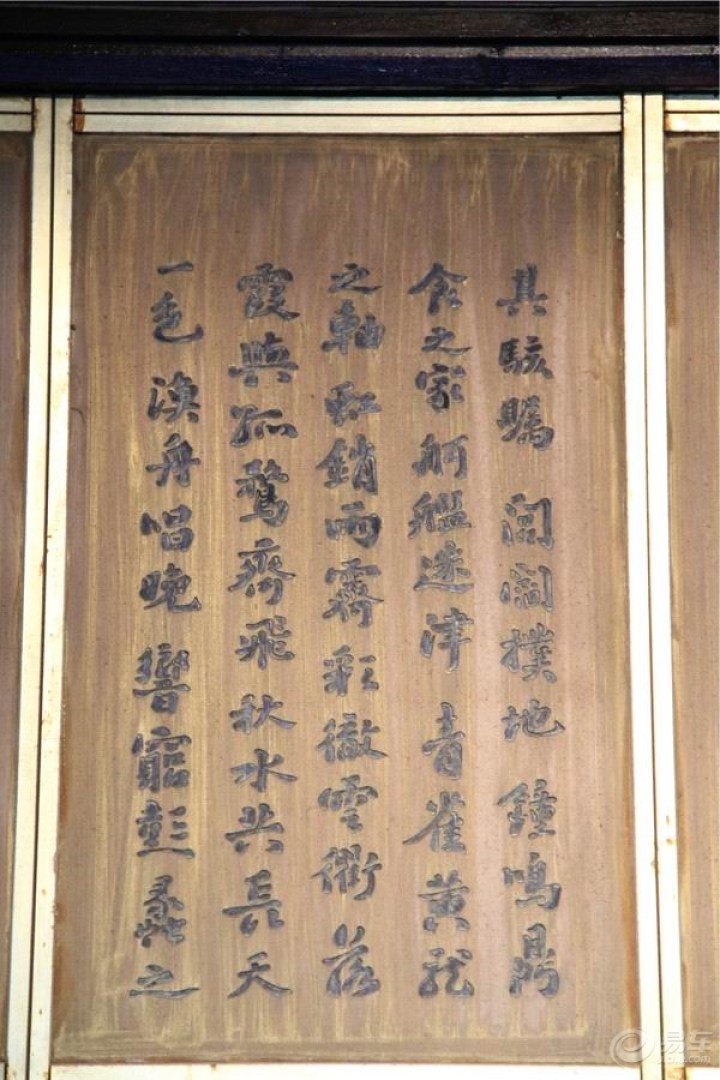 其駭矚閭閻撲地鐘鳴鼎
食之家舸艦迷津青雀黄龍
之軸虹銷雨霽彩徹雲衢落
霞與孤鶩齊飛秋水共長天
一色漁舟唱晚響窮彭蠡之
易车